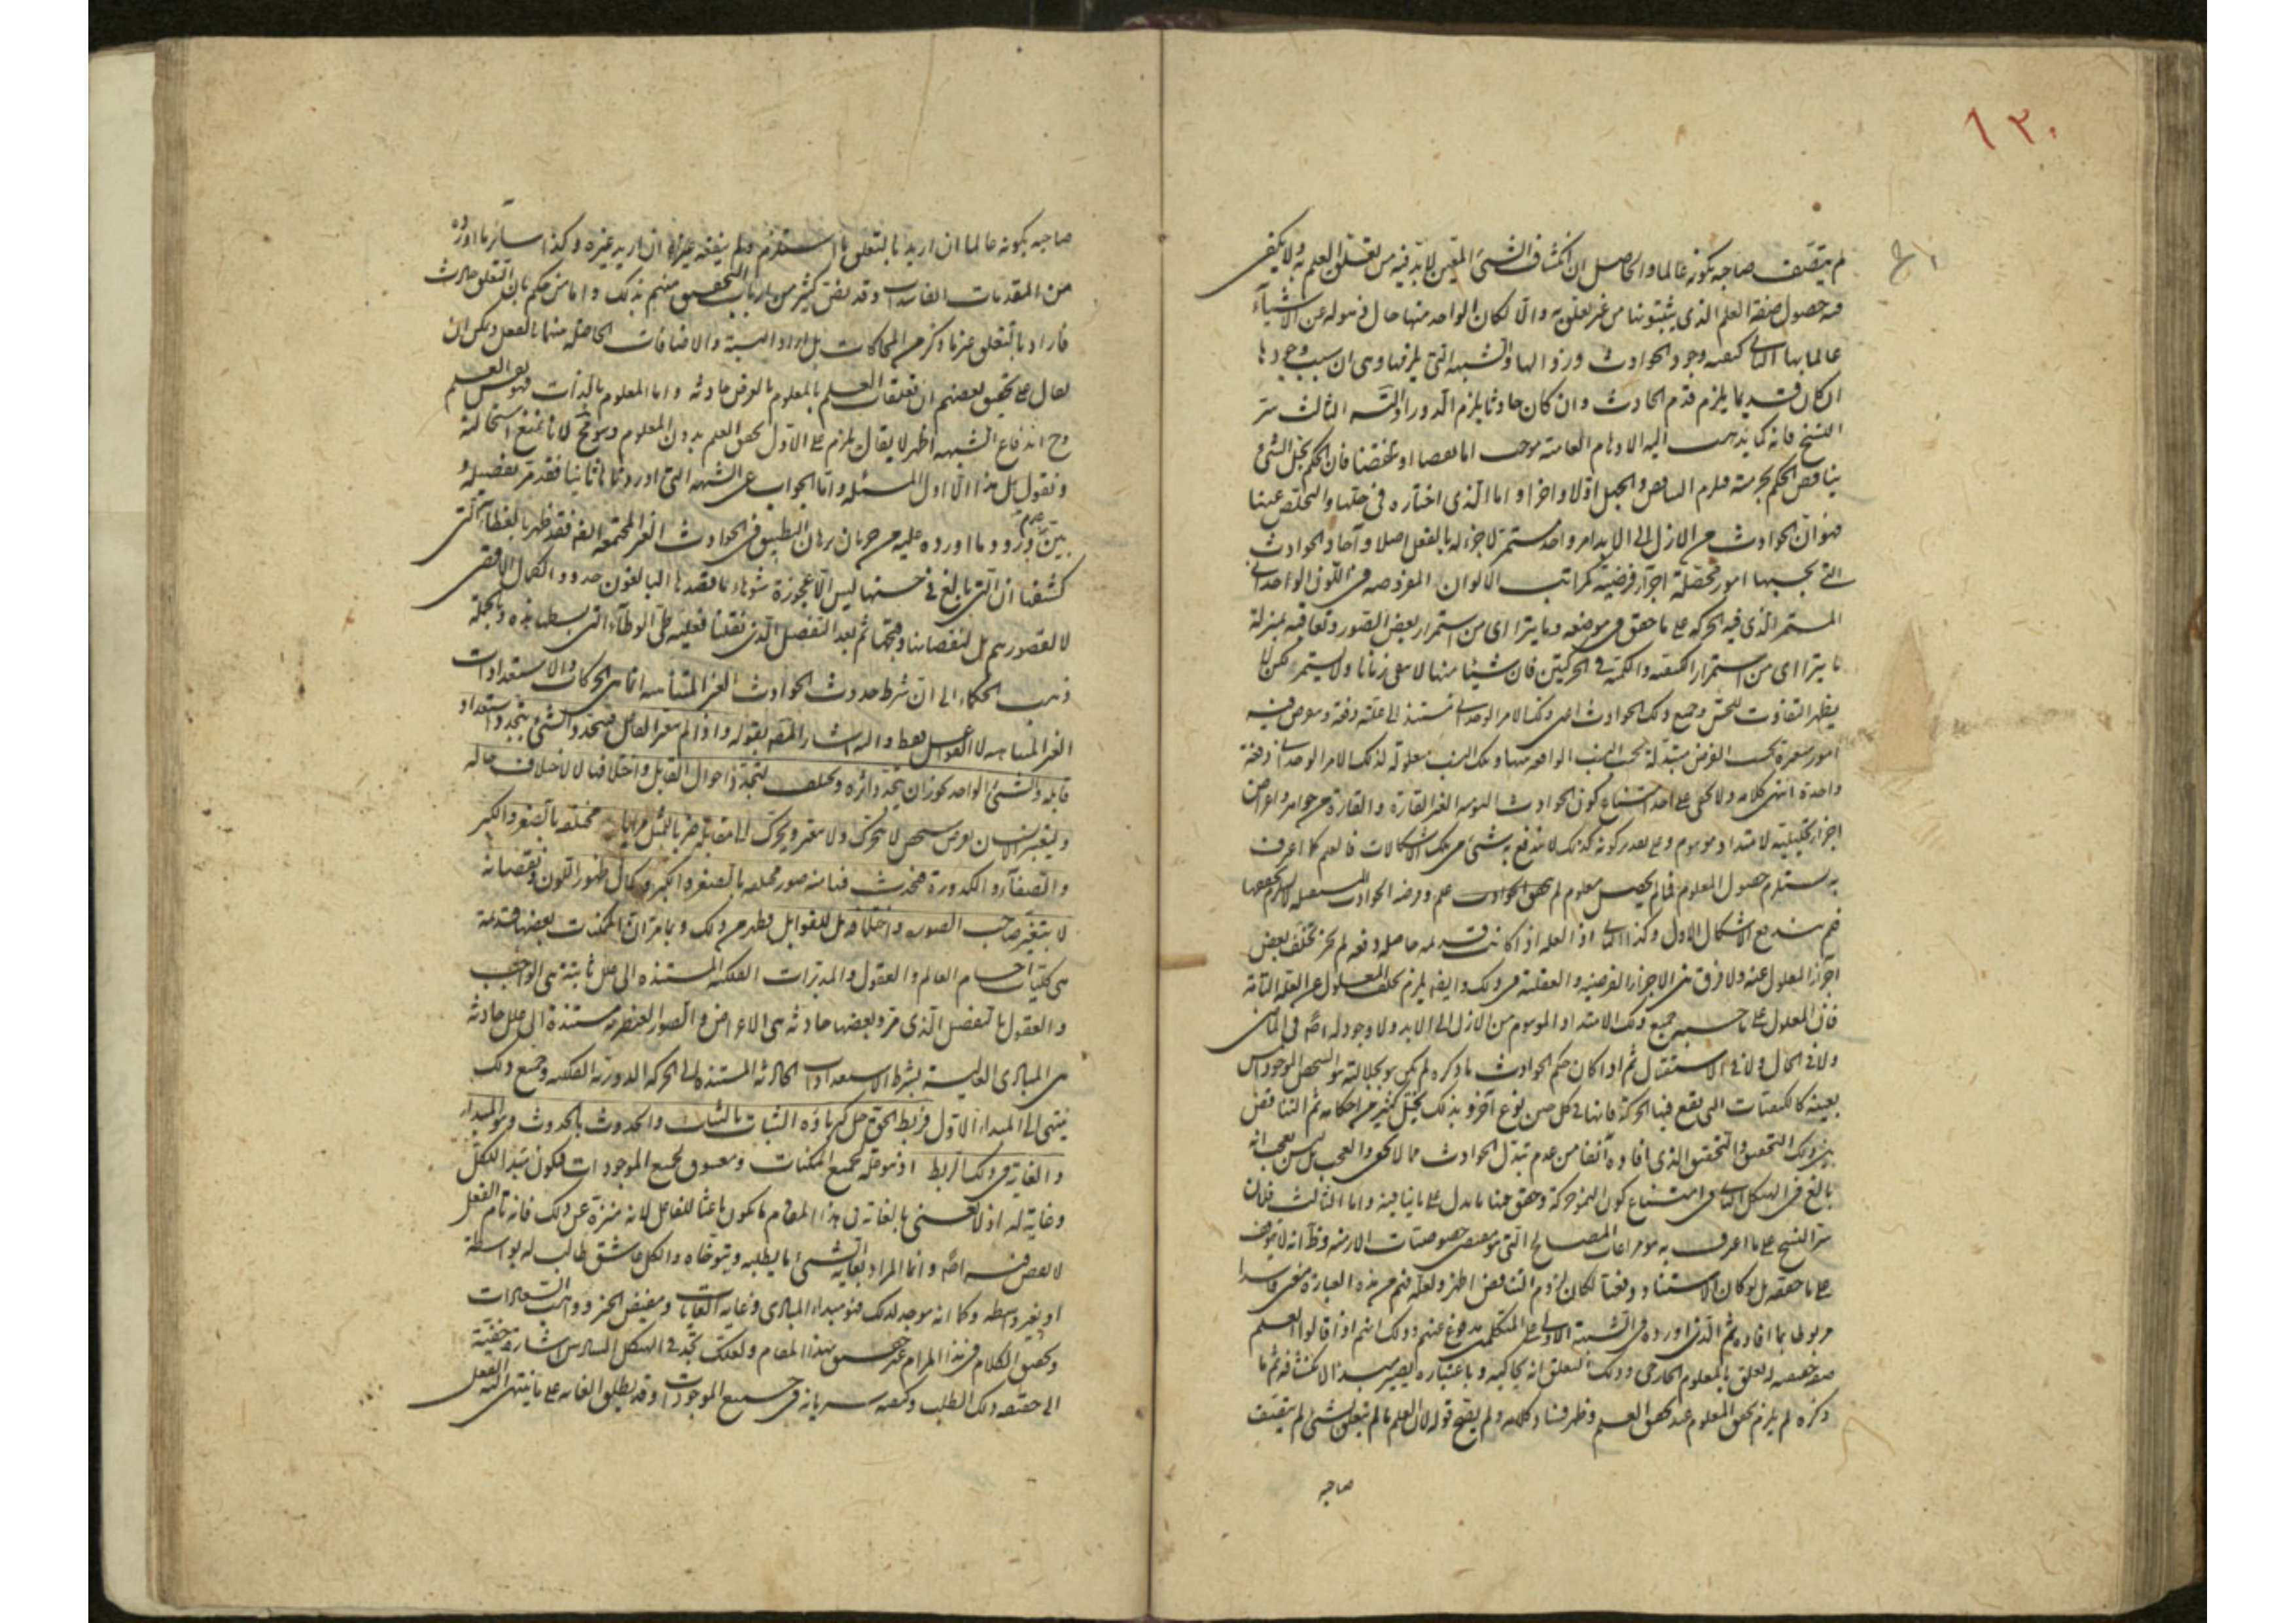 ١٣٠
لم يتصف صاحبه بكونه عالما والحاصل ان انكشاف الشئ المعين لا بد فيه من تعلق العلم به ولا يكفى
فيه حصول صفة العلم الذى يثبتونها من غير تعلق به والا لكان الواحد منها حال ذهوله عن الاشياء
عالما بها الثانى كيفية وجود الحوادث وزوالها والشبهة التى يلزمها وهى ان سبب وجودها
ان كان قديما يلزم قدم الحادث وان كان حادثا يلزم الدور او التسلسل الثالث سر
النسخ فانه كما يذهب اليه الاوهام العامية يوجب اما او تناقضا فان الحكم بحل الشئ
يناقض الحكم بحرمته فيلزم التناقض والجهل اولا واخرا واما الذى اختاره فى حلها والتخلص عنها
فهو ان الحوادث من الازل الى الابد امر واحد مستمر لا جزء له بالفعل اصلا وآحاد الحوادث
التى بحسبها امور محصلة اجزاء فرضية كمراتب الالوان المفروضة فى اللون الواحدانى
المستمر الذى فيه الحركة على ما حقق فى موضعه وما يتراءى من استمرار بعض الصور وتعاقبه بمنزلة
ما يتراءى من استمرار الكيفية والكمية فى الحركتين فان شيئا منها لا يبقى زمانا ولا يستمر لكن لا
يظهر التفاوت للحس وجميع تلك الحوادث اعنى ذلك الامر الوحدانى تستند الى علته دفعة
واحدة انتهى كلامه ولا يخفى على احد امتناع كون الحوادث الغير القارة والقارة من جواهر واعراض
اجزاء تحليلية لامتداد موهوم وعلى تقدير كونه كذلك لا يندفع به شئ من تلك الاشكالات فالعلم كما اعرف
به يستلزم حصول المعلوم فما لم يحصل معلوم لم يتحقق علم
فلم يندفع الاشكال الاول وكذا الثانى اذ العلة اذا كانت قديمة حاصلة دفعة لم يجز تخلف بعض
اجزاء المعلول عنه ولا فرق بين الاجزاء الفرضية والعقلية فى ذلك وايضا يلزم تخلف المعلول عن العلة التامة
فان المعلول على ما جميع ذلك الامتداد الموهوم من الازل الى الابد ولا وجود له اصلا فى الماضى
ولا فى الحال ولا فى الاستقبال ثم اذا كان حكم الحوادث ما ذكره لم يكن
بعينه كالكيفيات التى يقع فيها الحركة فانها فى كل حين نوع آخر وبذلك يختل كثير من احكامه ثم التناقض
بين ذلك التحقيق والتحقيق الذى افاده آنفا من عدم تبدل الحوادث مما لا يخفى والعجب
بالغ فى الهيكل الثانى امتناع كون وحقق هنا ما يدل على ما ينافيه واما الثالث فلان
سر النسخ على ما اعرف به هو مراعات المصالح التى هو مقتضى خصوصيات الازمنة وظ انه لا يتوقف
على ما حققه بل لو كان الاستناد دفعيا لكان لزوم التناقض اظهر ولعله فهم من هذه العبارة معنى فاسدا
مربوطا بما افاده ثم الذى اورده فى الشبهة الاولى على المتكلمين مدفوع عنهم وذلك انهم اذا قالوا العلم
صفة حقيقية له تعلق بالمعلوم الخارجى وذلك التعلق انه يحاكيه وباعتباره يصير مبدء الانكشافه ثم ما
ذكره لم يلزم تحقق المعلوم عند تحقق العلم وظهر فساد كلامه ولم يصح قوله لان العلم ما لم يتعلق بشئ لم يتصف
صاحبه
صاحبه بكونه عالما ان اريد بالتعلق ما استلزم ولم ينفعه غيره ان اريد غيره وكذا سائر ما اورده
من المقدمات الفاسدة وقد نص كثير من ارباب التحقيق منهم بذلك واما من حكم بان التعلق حادث
فاراد بالتعلق غير ما ذكر من المحاكات بل اراد النسبة والاضافات الحاصلة منها بالفعل ويمكن ان
يقال على تحقيق بعضهم ان تعلقات العلم بالمعلوم بالعرض حادثة واما المعلوم بالذات فهو نفس العلم
وح اندفاع الشبهة اظهر لا يقال يلزم على الاول تحقق العلم بدون المعلوم وهو مح لانا نمنع استحالته
ونقول هل هذا الا اول المسئلة واما الجواب عن الشبهة التى اوردناها ثانيا فقد مر تفصيله و
بين وما اورده عليه من جريان برهان التطبيق فى الحوادث الغير المجتمعة ايضا فقد ظهر بالغطاء التى
كشفنا ان التى بالغ فى حسنها ليس الا عجوزة شوهاء ما قصدها البالغون حدود الكمال الا
لا لقصورهم بل لنقصانها وقبحها ثم بعد التفصيل الذى نقلنا فعليه طى الوطاء التى بسطنا هذه وبالجملة
ذهب الحكماء الى ان شرط حدوث الحوادث الغير المتناهية انما هى الحركات والاستعدادات
الغير المتناهية لا الفواعل فقط واليه اشار المص بقوله واذا لم يتغير الفاعل فيتجدد الشئ بتجدد استعداد
قابله والشئ الواحد يجوز ان يتجدد اثره ويختلف لتجدد احوال القابل واختلافها لا لاختلاف حاله
وليعتبر الانسان بفرض شخص لا يتحرك ولا يتغير ويحرك الى مقابلته ضربا للمثل مرايا مختلفة بالصغر والكبر
والصفاء والكدورة فيحدث فيها منه صور مختلفة بالصغر والكبر وكمال ظهور اللون ونقصانه
لا بتغير صاحب الصورة واختلافه بل للقوابل فظهر من ذلك وبما مر ان الممكنات بعضها قديمة
هى كليات اجسام العالم والعقول والمدبرات الفلكية المستندة الى علل ثابتة هى الواجب
والعقول بالتفصيل الذى مر وبعضها حادثة هى الاعراض والصور العنصرية مستندة الى علل حادثة
هى المبادى العالية بشرط الاستعدادات الحادثة المستندة الى الحركة الدورية الفلكية وجميع ذلك
ينتهى الى المبداء الاول فربط الحق جل كبرياؤه الثبات بالثبات والحدوث بالحدوث وهو المبداء
والغاية فى ذلك الربط اذ هو علة لجميع الممكنات ومعشوق لجميع الموجودات فيكون مبدأ للكل
وغاية له اذ لا نعنى بالغاية فى هذا المقام ما يكون باعثا للفاعل لانه منزه عن ذلك فانه تام الفعل
لا نقص فيه اصلا وانما المراد بغاية الشئ ما يطلبه ويتوخاه والكل عاشق طالب له بواسطة
او بغير واسطة وكما انه موجد لذلك فهو مبداء المبادى وغاية الغايات ومفيض الخير وواهب السعادات
وتحقيق الكلام فى هذا المرام غير حقيق بهذا المقام ولعلك تجد فى الهيكل السادس اشارة خفية
الى حقيقة ذلك الطلب وكيفية سريانه فى جميع الموجودات وقد يطلق الغاية على ما ينتهى اليه الفعل